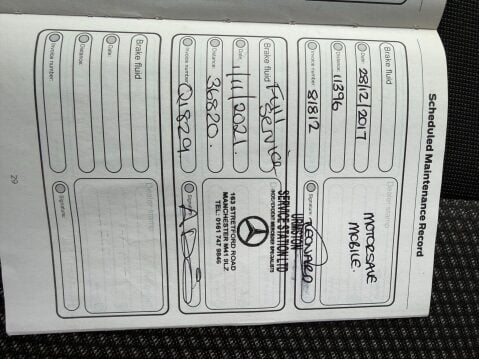 Scheduled Maintenance Record
Brake fluid
Date: 28/12/2017
Distance: 11396
Invoice number: 81812
Dealer stamp
MOTORSAVE
MOBILE.
Signature: LEONARD
Brake fluid Full
Service
Date: 1/11/2021.
Distance: 36820.
Invoice number: Q1829
URMSTON
SERVICE STATION LTD
163 STRETFORD ROAD
MANCHESTER M41 9LZ
TEL: 0161 747 9846
Signature:
Brake fluid
Date:
Distance:
Invoice number:
Dealer stamp
Signature:
29